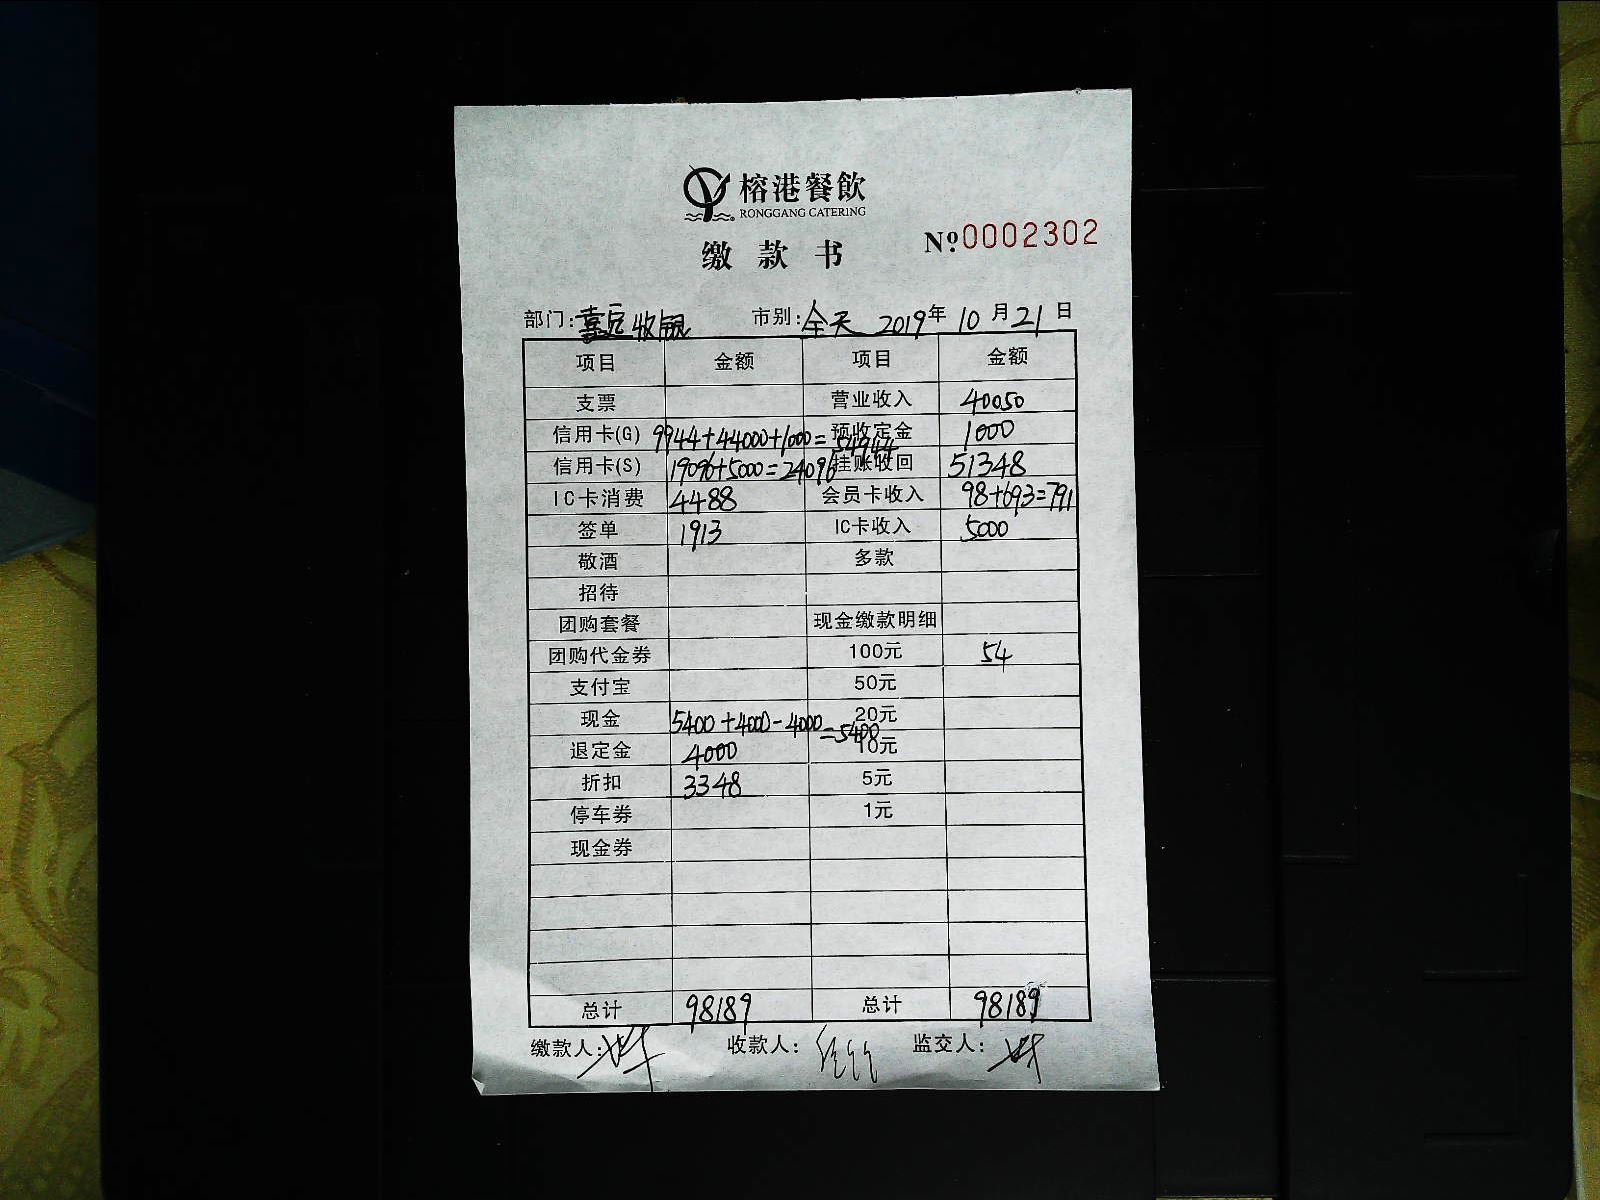 榕港餐飲
RONGGANG CATERING
缴款书
№0002302
部门:嘉定收银 市别:全天 2019年10月21日
项目 金额 项目 金额
支票 营业收入 40050
信用卡(G) 9944+44000+1000=54944 预收定金 1000
信用卡(S) 19096+5000=24096 挂账收回 51348
IC卡消费 4488 会员卡收入 98+693=791
签单 1913 IC卡收入 5000
敬酒 多款
招待
团购套餐 现金缴款明细
团购代金券 100元 54
支付宝 50元
现金 5400+4000-4000=5400 20元
退定金 4000 10元
折扣 3348 5元
停车券 1元
现金券
总计 98189 总计 98189
缴款人: 收款人: 监交人: